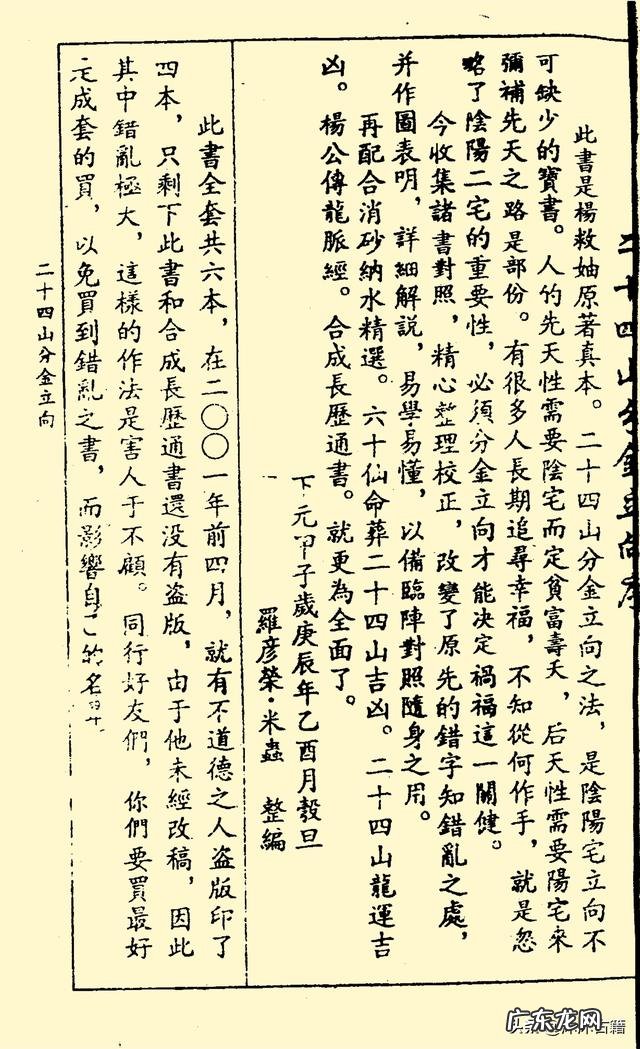 二十四山分金立向序
此書是楊救妯原著真本。二十四山分金立向之法，是陰陽宅立向不
可缺少的寶書。人的先天性需要陰宅而定貧富壽夭，后天性需要陽宅來
彌補先天之路是部份。有很多人長期追尋幸福，不知從何作手，就是忽
略了陰陽二宅的重要性，必須分金立向才能決定禍福這一關健。
今收集諸書對照，精心整理校正，改變了原先的錯字知錯亂之處，
并作圖表明，詳細解說，易學易懂，以備臨陣對照隨身之用。
再配合消砂納水精選。六十仙命葬二十四山吉凶。二十四山龍運吉
凶。楊公傳龍脈經。合成長歷通書。就更為全面了。
下元甲子歲庚辰年乙酉月穀旦
羅彥榮·米蟲 整編
此書全套共六本，在二〇〇一年前四月，就有不道德之人盜版印了
四本，只剩下此書和合成長歷通書還没有盜版，由于他未經改稿，因此
其中錯亂極大，這樣的作法是害人于不顧。同行好友們，你們要買最好
是成套的買，以免買到錯亂之書，而影響自己的名
二十四山分金立向
古籍
广东龙网